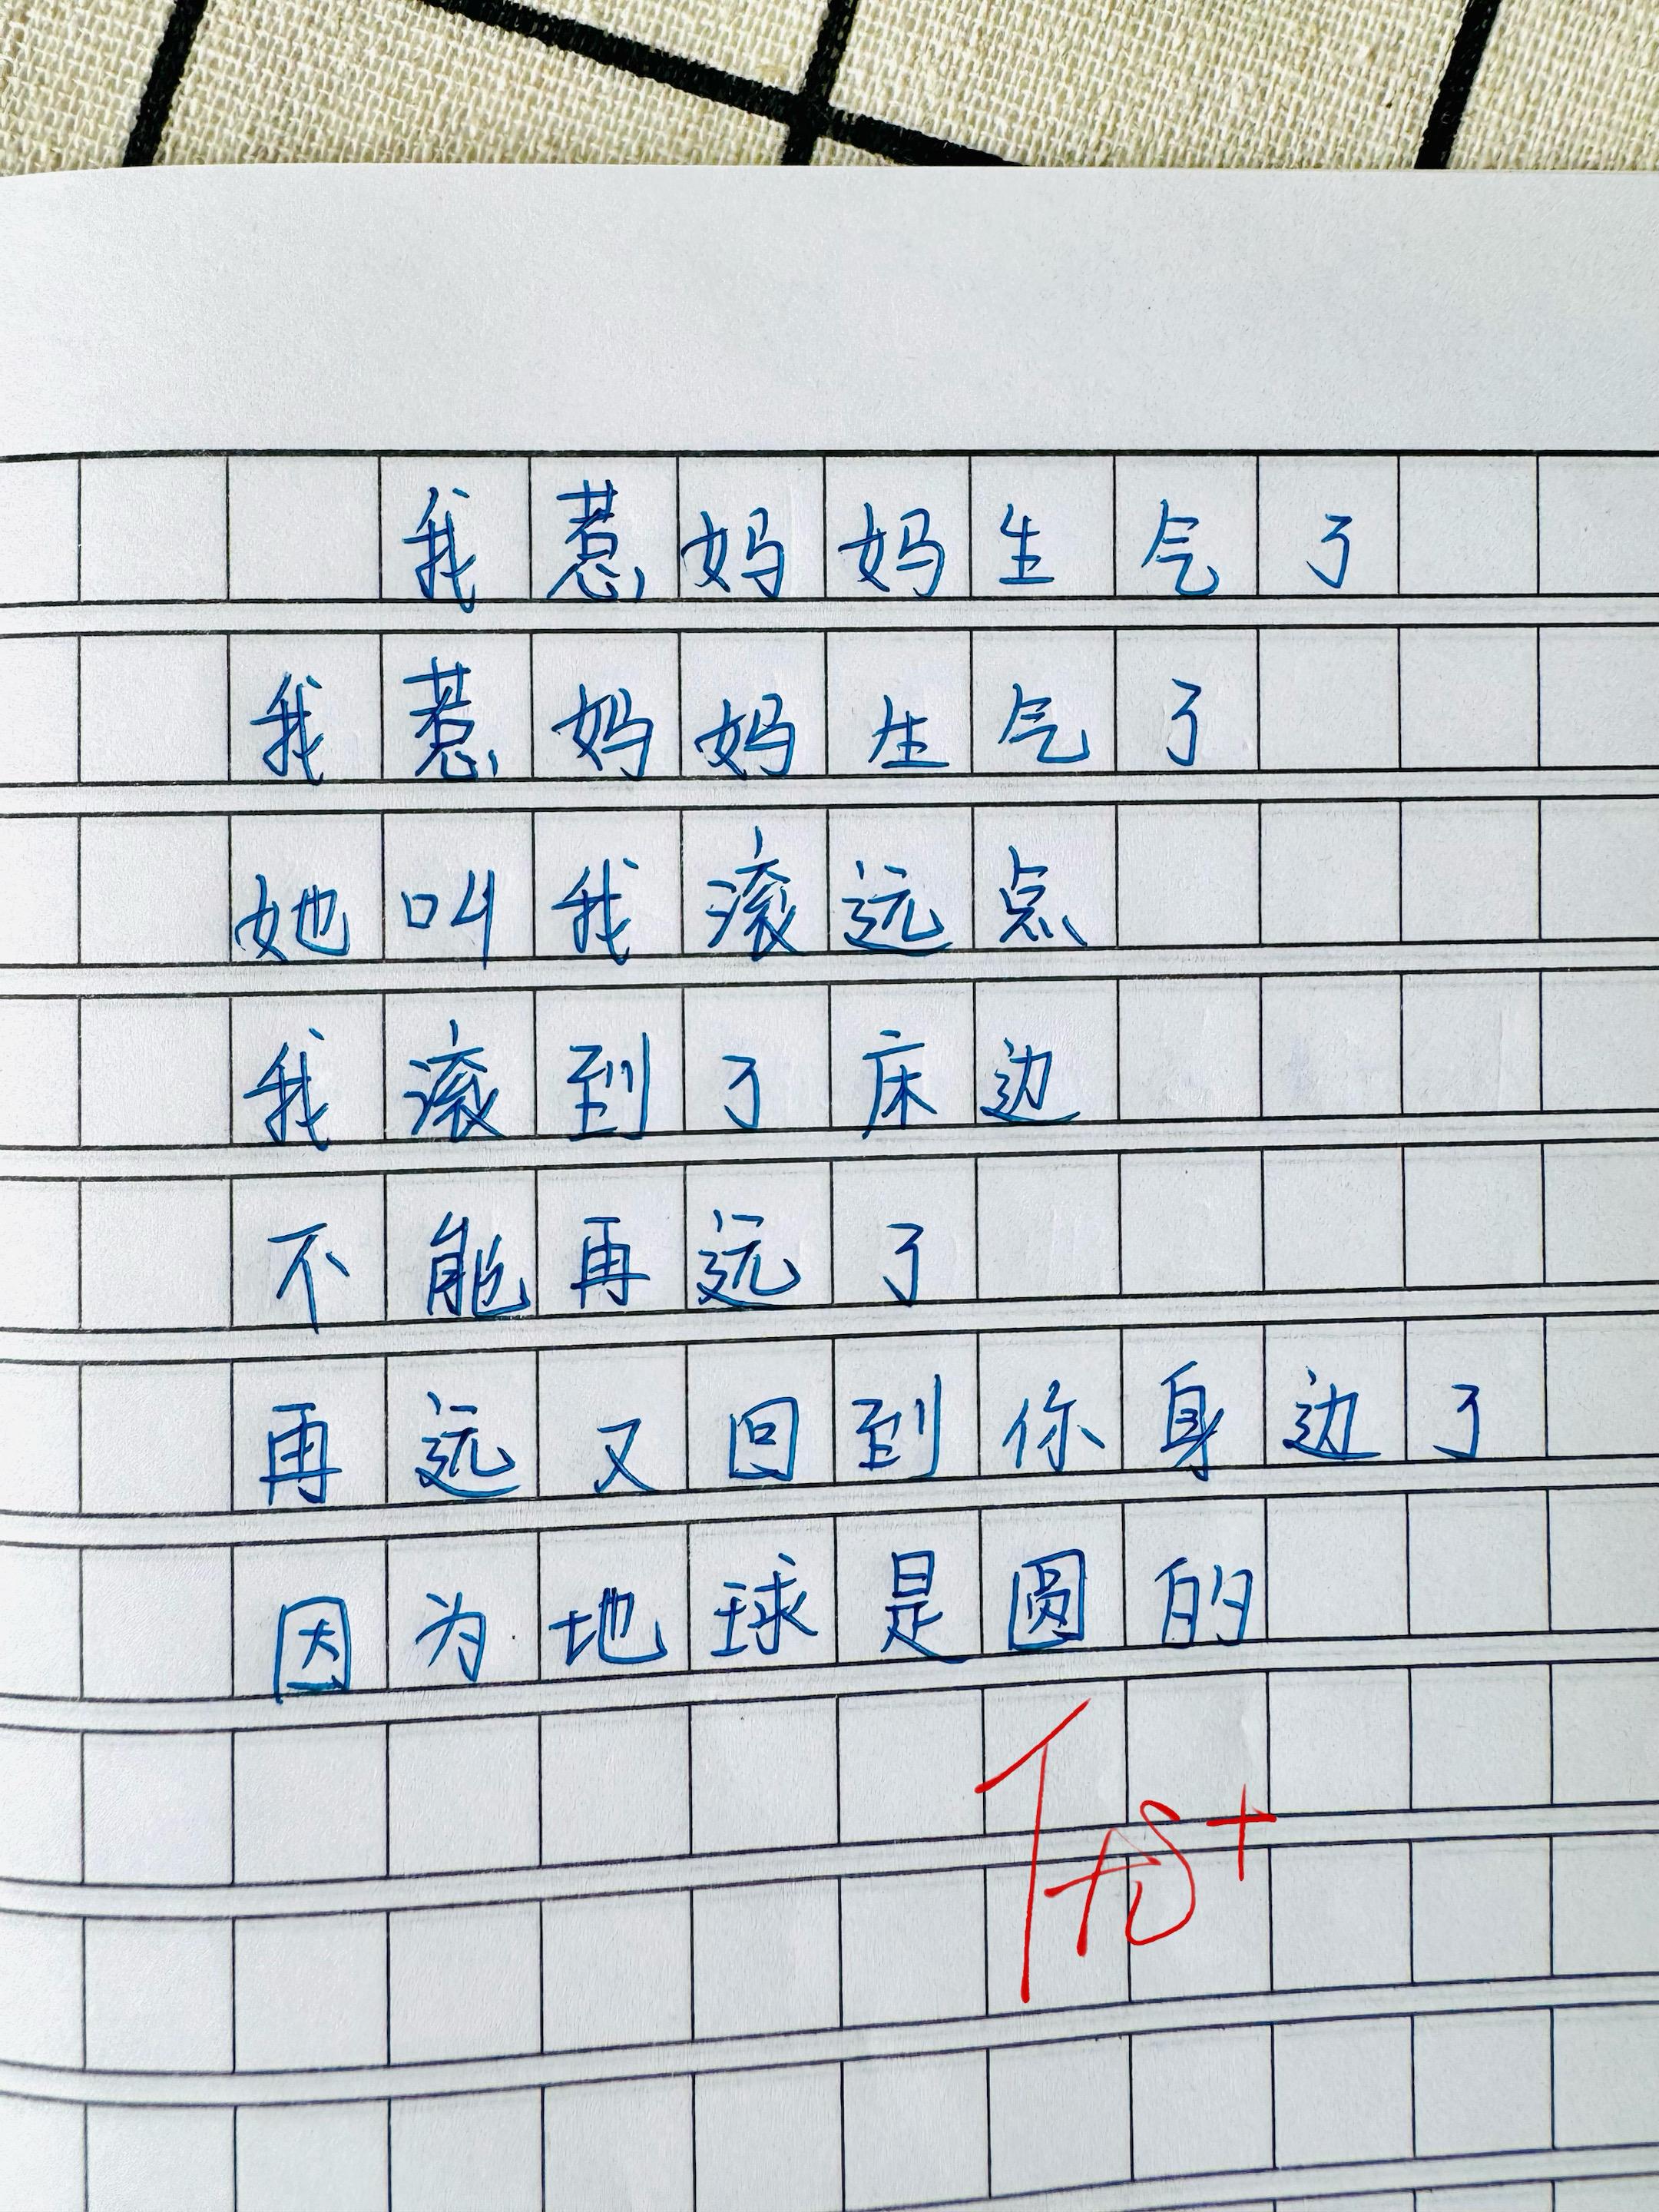 我惹妈妈生气了
我惹妈妈生气了
她叫我滚远点
我滚到了床边
不能再远了
再远又回到你身边了
因为地球是圆的